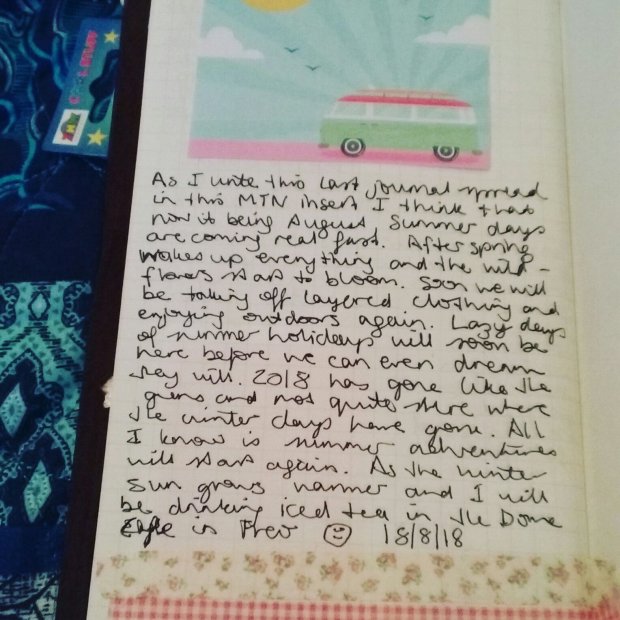 As I write this last journal spread
in this MTN insert I think that
now it being August Summer days
are coming real fast. After spring
wakes up everything and the wild-
flowers start to bloom. Soon we will
be taking off layered clothing and
enjoying outdoors again. Lazy days
of summer holidays will soon be
here before we can even dream
they will. 2018 has gone like the
guns and not quite sure where
the winter days have gone. All
I know is summer adventures
will start again. As the winter
sun grows warmer and I will
be drinking iced tea in the Dome
in Freo 18/8/18